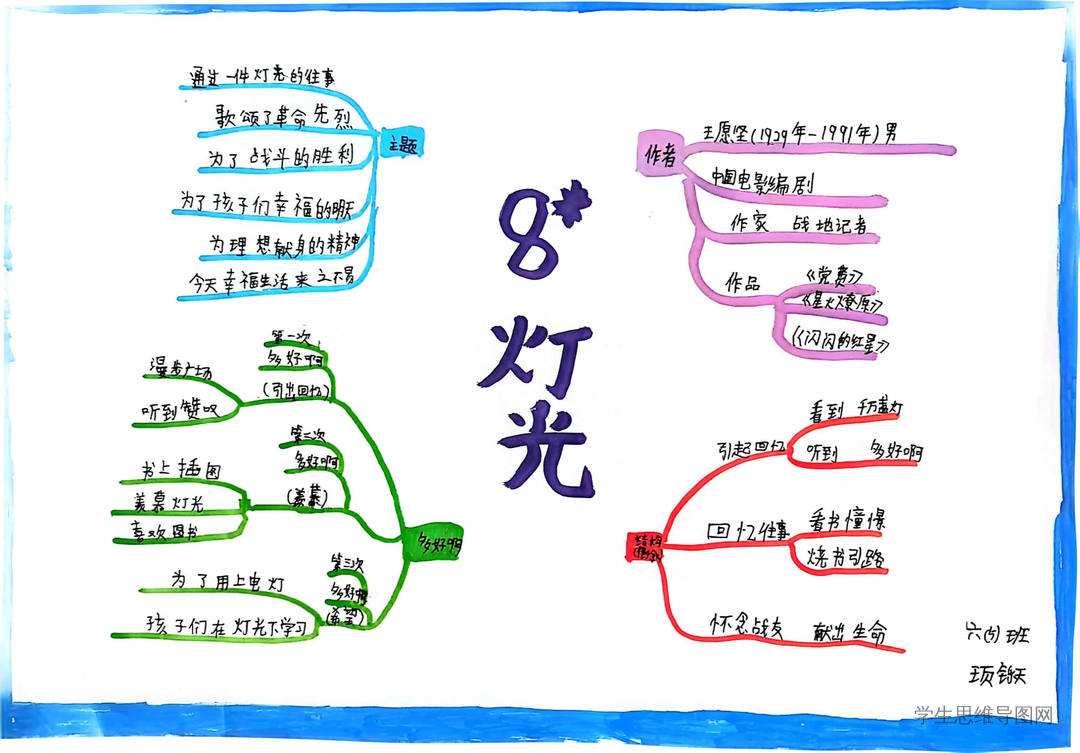 8*
灯光
主题
通过一件灯光的往事
歌颂了革命先烈
为了战斗的胜利
为了孩子们幸福的明天
为理想献身的精神
今天幸福生活来之不易
作者
王愿坚(1929年-1991年)男
中国电影编剧
作家 战地记者
作品
《党费》
《星火燎原》
《闪闪的红星》
多好啊
第一次
多好啊
(引出回忆)
漫步广场
听到赞叹
第二次
多好啊
(羡慕)
书上插图
羡慕灯光
喜欢图书
第三次
多好啊
(希望)
为了用上电灯
孩子们在灯光下学习
结构
引起回忆
看到 千万盏灯
听到 多好啊
回忆往事
看书憧憬
烧书引路
怀念战友 献出生命
六(4)班
学生思维导图网